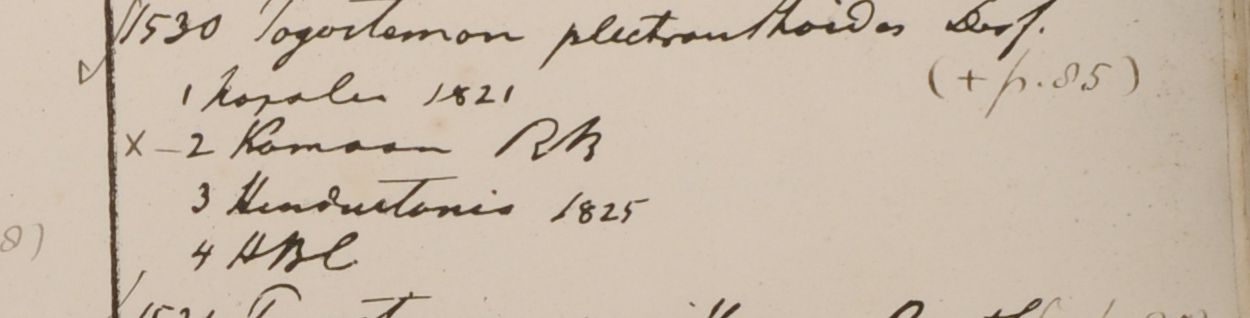 1530 Pogostemon plectranthoides Desf.
(+ p. 85)
1 Napalia 1821
x – 2 Kamaon RB
3 Hindustania 1825
4 HBC
8)
1531